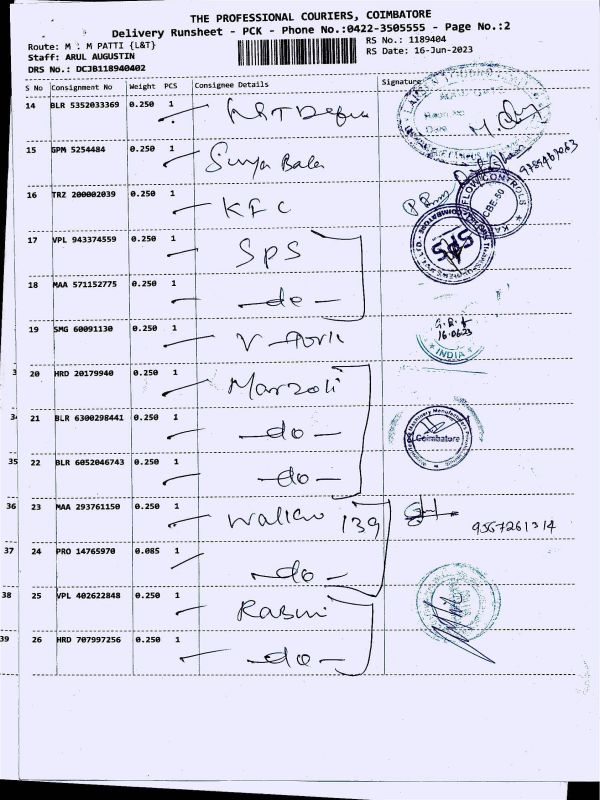 THE PROFESSIONAL COURIERS, COIMBATORE
Delivery Runsheet - PCK - Phone No.:0422-3505555 - Page No.:2
Route: M : M PATTI {L&T}
RS No.: 1189404
Staff: ARUL AUGUSTIN
RS Date: 16-Jun-2023
DRS No.: DCJB118940402
S No Consignment No Weight PCS Consignee Details Signature
14 BLR 5352033369 0.250 1
15 GPM 5254484 0.250 1 Surya Bala
16 TRZ 200002039 0.250 1 KFC
FLOW CONTROLS
CBE.50
17 VPL 943374559 0.250 1 SPS
SPS
18 MAA 571152775 0.250 1 -do-
19 SMG 60091130 0.250 1 V
16.06.23
INDIA
3 20 HRD 20179940 0.250 1 Marzoli
34 21 BLR 6300298441 0.250 1 -do-
Coimbatore
35 22 BLR 6052046743 0.250 1 -do-
36 23 MAA 293761150 0.250 1 139 9567261314
37 24 PRO 14765970 0.085 1 -do-
38 25 VPL 402622848 0.250 1
39 26 HRD 707997256 0.250 1 -do-